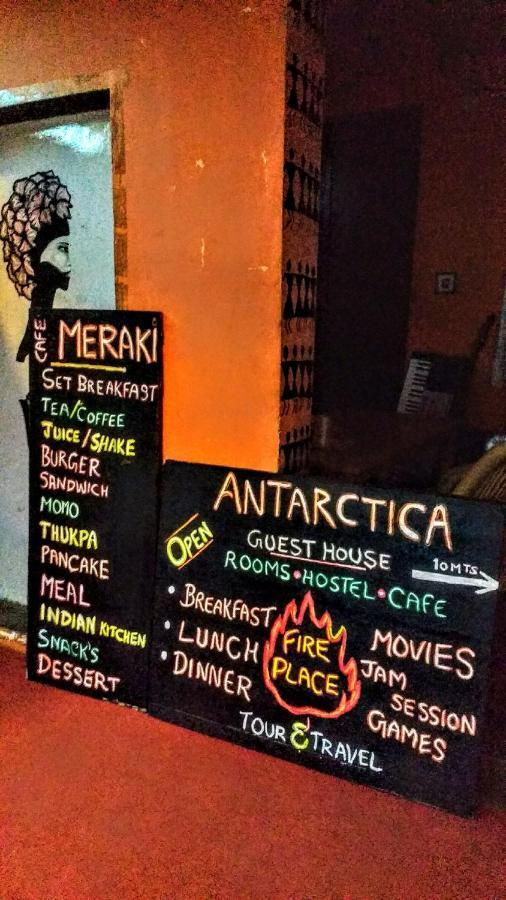 CAFE MERAKI
SET BREAKFAST
TEA/COFFEE
JUICE/SHAKE
BURGER
SANDWICH
MOMO
THUKPA
PANCAKE
MEAL
INDIAN KITCHEN
SNACK'S
DESSERT
ANTARCTICA
OPEN
GUEST HOUSE
10 MTS
ROOMS • HOSTEL • CAFE
• BREAKFAST
• LUNCH
• DINNER
FIRE
PLACE
MOVIES
JAM
SESSION
GAMES
TOUR & TRAVEL